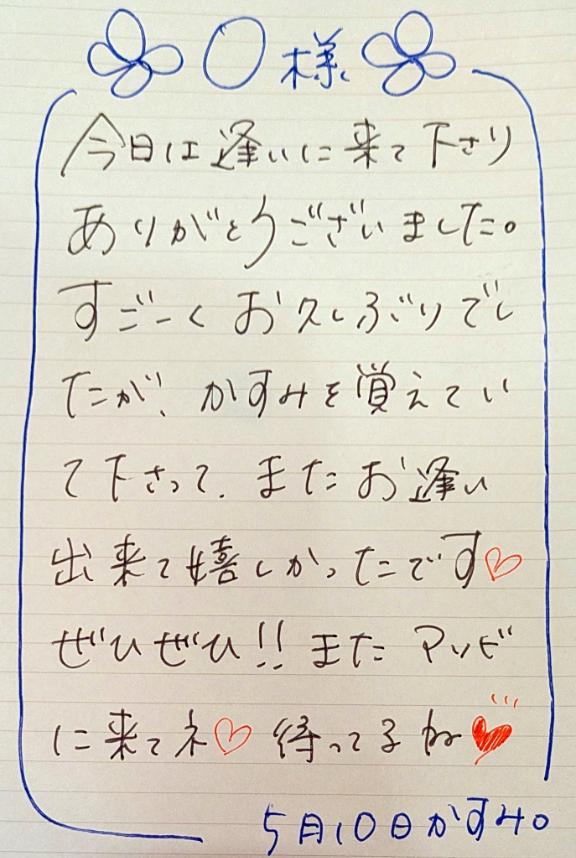 〇様
今日は逢いに来て下さり
ありがとうございました。
すごーくお久しぶりでし
たが、かすみを覚えてい
て下さって、またお逢い
出来て嬉しかったです♡
ぜひぜひ!!またアソビ
に来てネ♡待ってるね♥
5月10日かすみ。